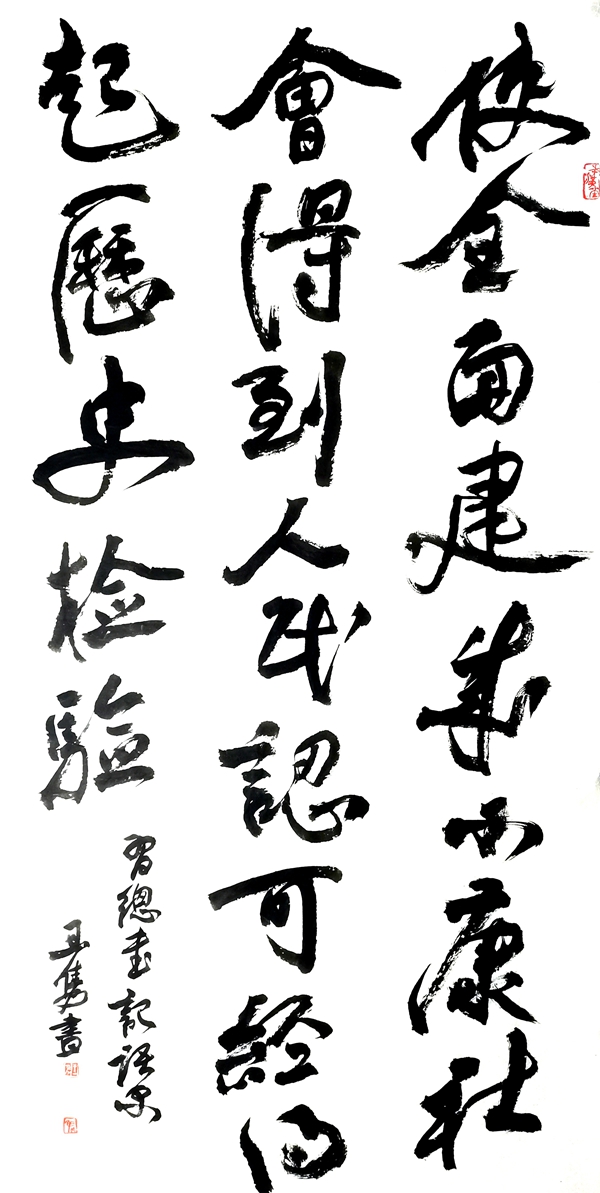 使全面建成小康社
會得到人民認可經得
起歷史檢驗
習總書記語录
书